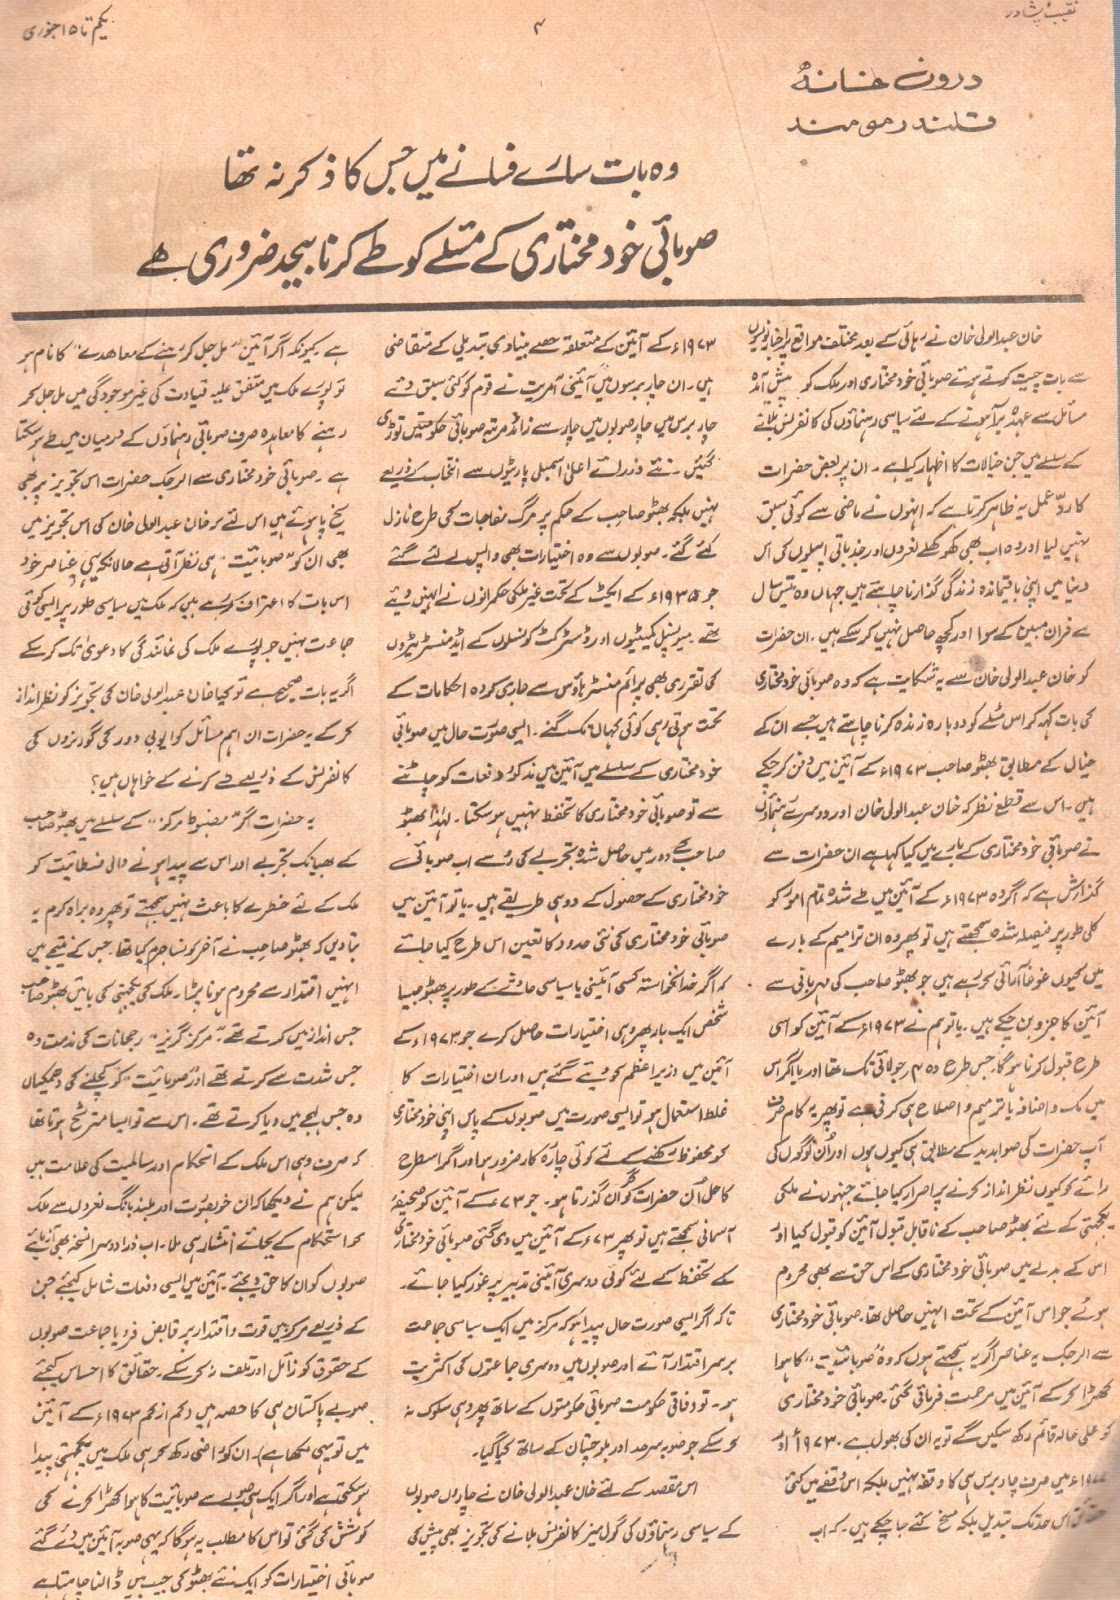 نقیب پشاور
۴
یکم تا ۱۵ جنوری
درون خانہ
قلندر مومند
وہ بات سارے فسانے میں جس کا ذکر نہ تھا
صوبائی خود مختاری کے مسئلے کو طے کرنا بیحد ضروری ہے
خان عبدالولی خان نے رہائی کے بعد مختلف مواقع پر اخبار نویسوں
سے بات چیت کرتے ہوئے صوبائی خود مختاری اور ملک کو پیش آمدہ
مسائل سے عہدہ برآ ہونے کے لئے سیاسی رہنماؤں کی کانفرنس بلانے
کے سلسلے میں جن خیالات کا اظہار کیا ہے۔ ان پر بعض حضرات
کا ردّ عمل یہ ظاہر کرتا ہے کہ انہوں نے ماضی سے کوئی سبق
نہیں لیا اور وہ اب بھی کھوکھلے نعروں اور جذباتی اپیلوں کی اس
دنیا میں اپنی باقیماندہ زندگی گذارنا چاہتے ہیں جہاں وہ تیس سال
سے خسران مبین کے سوا اور کچھ حاصل نہیں کر سکے ہیں۔ ان حضرت
کو خان عبدالولی خان سے یہ شکایت ہے کہ وہ صوبائی خود مختاری
کی بات کہہ کر اس مسئلے کو دوبارہ زندہ کرنا چاہتے ہیں جسے ان کے
خیال کے مطابق بھٹو صاحب ۱۹۷۳ء کے آئین میں دفن کر چکے
ہیں۔ اس سے قطع نظر کہ خان عبدالولی خان اور دوسرے رہنماؤں
نے صوبائی خود مختاری کے بارے میں کیا کہا ہے ان حضرات سے
گذارش ہے کہ اگر وہ ۱۹۷۳ء کے آئین میں طے شدہ تمام امور کو
کلی طور پر فیصلہ شدہ سمجھتے ہیں تو پھر وہ ان ترامیم کے بارے
میں کیوں غوغا آرائی کر رہے ہیں جو بھٹو صاحب کی مہربانی سے
آئین کا جزو بن چکے ہیں۔ یا تو ہم نے ۱۹۷۳ء کے آئین کو اسی
طرح قبول کرنا ہوگا، جس طرح وہ ۴ر جولائی تک تھا اور یا اگر اس
میں حک و اضافہ یا ترمیم و اصلاح ہی کرنی ہے تو پھر یہ کام صرف
آپ حضرات کی صوابدید کے مطابق ہی کیوں ہوں اور اُن لوگوں کی
رائے کو کیوں نظر انداز کرنے پر اصرار کیا جائے جنہوں نے ملکی
یکجہتی کے لئے بھٹو صاحب کے ناقابل قبول آئین کو قبول کیا اور
اس کے بدلے میں صوبائی خود مختاری کے اس حق سے بھی محروم
ہوئے جو اس آئین کے تحت انہیں حاصل تھا۔ صوبائی خود مختاری
سے الرجک یہ عناصر اگر یہ سمجھتے ہوں کہ وہ "صوبائیت" کا ہوا
کھڑا کر کے آئین میں مرحمت فرمائی گئی۔ صوبائی خود مختاری
کو علیٰ حالہ قائم رکھ سکیں گے تو یہ ان کی بھول ہے۔ ۱۹۷۳ء اور
۱۹۷۷ء میں صرف چار برس ہی کا وقفہ نہیں بلکہ اس وقفے میں کئی
حقائق اس حد تک تبدیل بلکہ مسخ کئے جا چکے ہیں۔ کہ اب
۱۹۷۳ء کے آئین کے متعلقہ حصے بنیادی تبدیلی کے متقاضی
ہیں۔ ان چار برسوں میں آئینی آمریت نے قوم کو کئی سبق دئے
چار برس میں چار صوبوں میں چار سے زائد مرتبہ صوبائی حکومتیں توڑی
گئیں۔ نئے وزرائے اعلیٰ اسمبلی پارٹیوں سے انتخاب کے ذریعے
نہیں بلکہ بھٹو صاحب کے حکم پر مرگ مفاجات کی طرح نازل
کئے گئے۔ صوبوں سے وہ اختیارات بھی واپس لے لئے گئے
جو ۱۹۳۵ء کے ایکٹ کے تحت غیر ملکی حکمرانوں نے انہیں دئیے
تھے۔ میونسپل کمیٹیوں اور ڈسٹرکٹ کونسلوں کے ایڈمنسٹریٹروں
کی تقرری بھی پرائم منسٹر ہاؤس سے جاری کردہ احکامات کے
تحت ہوتی رہی کوئی کہاں تک گنے۔ ایسی صورت حال میں صوبائی
خود مختاری کے سلسلے میں آئین میں مذکور دفعات کو چاٹنے
سے تو صوبائی خود مختاری کا تحفظ نہیں ہو سکتا۔ لہٰذا بھٹو
صاحب کے دور میں حاصل شدہ تجربے کی رُو سے اب صوبائی
خود مختاری کے حصول کے دو ہی طریقے ہیں۔ یا تو آئین میں
صوبائی خود مختاری کی نئی حدود کا تعین اس طرح کیا جائے
کہ اگر خدانخواستہ کسی آئینی یا سیاسی حادثے کے طور پر بھٹو جیسا
شخص ایک بار پھر وہی اختیارات حاصل کرے جو ۱۹۷۳ء کے
آئین میں وزیر اعظم کو دیئے گئے ہیں اور ان اختیارات کا
غلط استعمال ہو تو ایسی صورت میں صوبوں کے پاس اپنی خود مختاری
کو محفوظ رکھنے کے لئے کوئی چارۂ کار ضرور ہو اور اگر اس طرح
کا حل اُن حضرات کو گراں گذرتا ہو۔ جو ۷۳ء کے آئین کو صحیفۂ
آسمانی سمجھتے ہیں تو پھر ۷۳ء کے آئین میں دی گئی صوبائی خود مختاری
کے تحفظ کے لئے کوئی دوسری آئینی تدبیر پر غور کیا جائے۔
تاکہ اگر ایسی صورت حال پیدا ہو کہ مرکز میں ایک سیاسی جماعت
برسر اقتدار آئے اور صوبوں میں دوسری جماعتوں کی اکثریت
ہو۔ تو وفاقی حکومت صوبائی حکومتوں کے ساتھ پھر وہی سلوک نہ
کر سکے جو صوبہ سرحد اور بلوچستان کے ساتھ کیا گیا۔
اس مقصد کے لئے خان عبدالولی خان نے چاروں صوبوں
کے سیاسی رہنماؤں کی گول میز کانفرنس بلانے کی تجویز بھی پیش کی
ہے۔ کیونکہ اگر آئین "مل جل کر رہنے کے معاہدے" کا نام ہو
تو پورے ملک میں متفق علیہ قیادت کی غیر موجودگی میں مل جل کر
رہنے کا معاہدہ صرف صوبائی رہنماؤں کے درمیان میں طے ہو سکتا
ہے۔ صوبائی خود مختاری سے الرجک حضرات اس تجویز پر بھی
سیخ پا ہوئے ہیں اس لئے کہ خان عبدالولی خان کی اس تجویز میں
بھی ان کو "صوبائیت" ہی نظر آتی ہے حالانکہ یہی عناصر خود
اس بات کا اعتراف کر رہے ہیں کہ ملک میں سیاسی طور پر ایسی کوئی
جماعت نہیں جو پورے ملک کی نمائندگی کا دعویٰ تک کر سکے
اگر یہ بات صحیح ہے تو کیا خان عبدالولی خان کی تجویز کو نظر انداز
کر کے یہ حضرات ان اہم مسائل کو ایوبی دور کی گورنروں کی
کانفرنس کے ذریعے طے کرنے کے خواہاں ہیں؟
یہ حضرات اگر "مضبوط مرکز" کے سلسلے میں بھٹو صاحب
کے بھیانک تجربے اور اس سے پیدا ہونے والی فسطائیت کو
ملک کے لئے خطرے کا باعث نہیں سمجھتے تو پھر وہ براہ کرم یہ
بتا دیں کہ بھٹو صاحب نے آخر کونسا جرم کیا تھا۔ جس کے نتیجے میں
انہیں اقتدار سے محروم ہونا پڑا۔ ملک کی یکجہتی کی باتیں بھٹو صاحب
جس انداز میں کرتے تھے۔ "مرکز گریز" رجحانات کی مذمت وہ
جس شدت سے کرتے تھے اور "صوبائیت" کو کچلنے کی دھمکیاں
وہ جس لہجے میں دیا کرتے تھے۔ اس سے تو ایسا مترشح ہوتا تھا
کہ صرف وہی اس ملک کے استحکام اور سالمیت کی علامت ہیں
لیکن ہم نے دیکھا کہ ان خوبصورت اور بلند بانگ نعروں سے ملک
کو استحکام کے بجائے انتشار ہی ملا۔ اب ذرا دوسرا نسخہ بھی آزمائیے
صوبوں کو ان کا حق دیجئے۔ آئین میں ایسی دفعات شامل کیجئے جن
کے ذریعے مرکز میں قوت و اقتدار پر قابض فرد یا جماعت صوبوں
کے حقوق کو زائل اور تلف نہ کر سکے۔ حقائق کا احساس کیجئے
صوبے پاکستان ہی کا حصہ ہیں (کم از کم ۱۹۷۳ء کے آئین
میں تو یہی لکھا ہے)۔ ان کو راضی رکھ کر ہی ملک میں یکجہتی پیدا
ہو سکتی ہے اور اگر ایک ہی صوبے سے صوبائیت کا ہوا کھڑا کرنے کی
کوشش کی گئی تو اس کا مطلب یہ ہوگا کہ یہی صوبہ آئین میں دئے گئے
صوبائی اختیارات کو ایک نئے بھٹو کی جیب میں ڈالنا چاہتا ہے